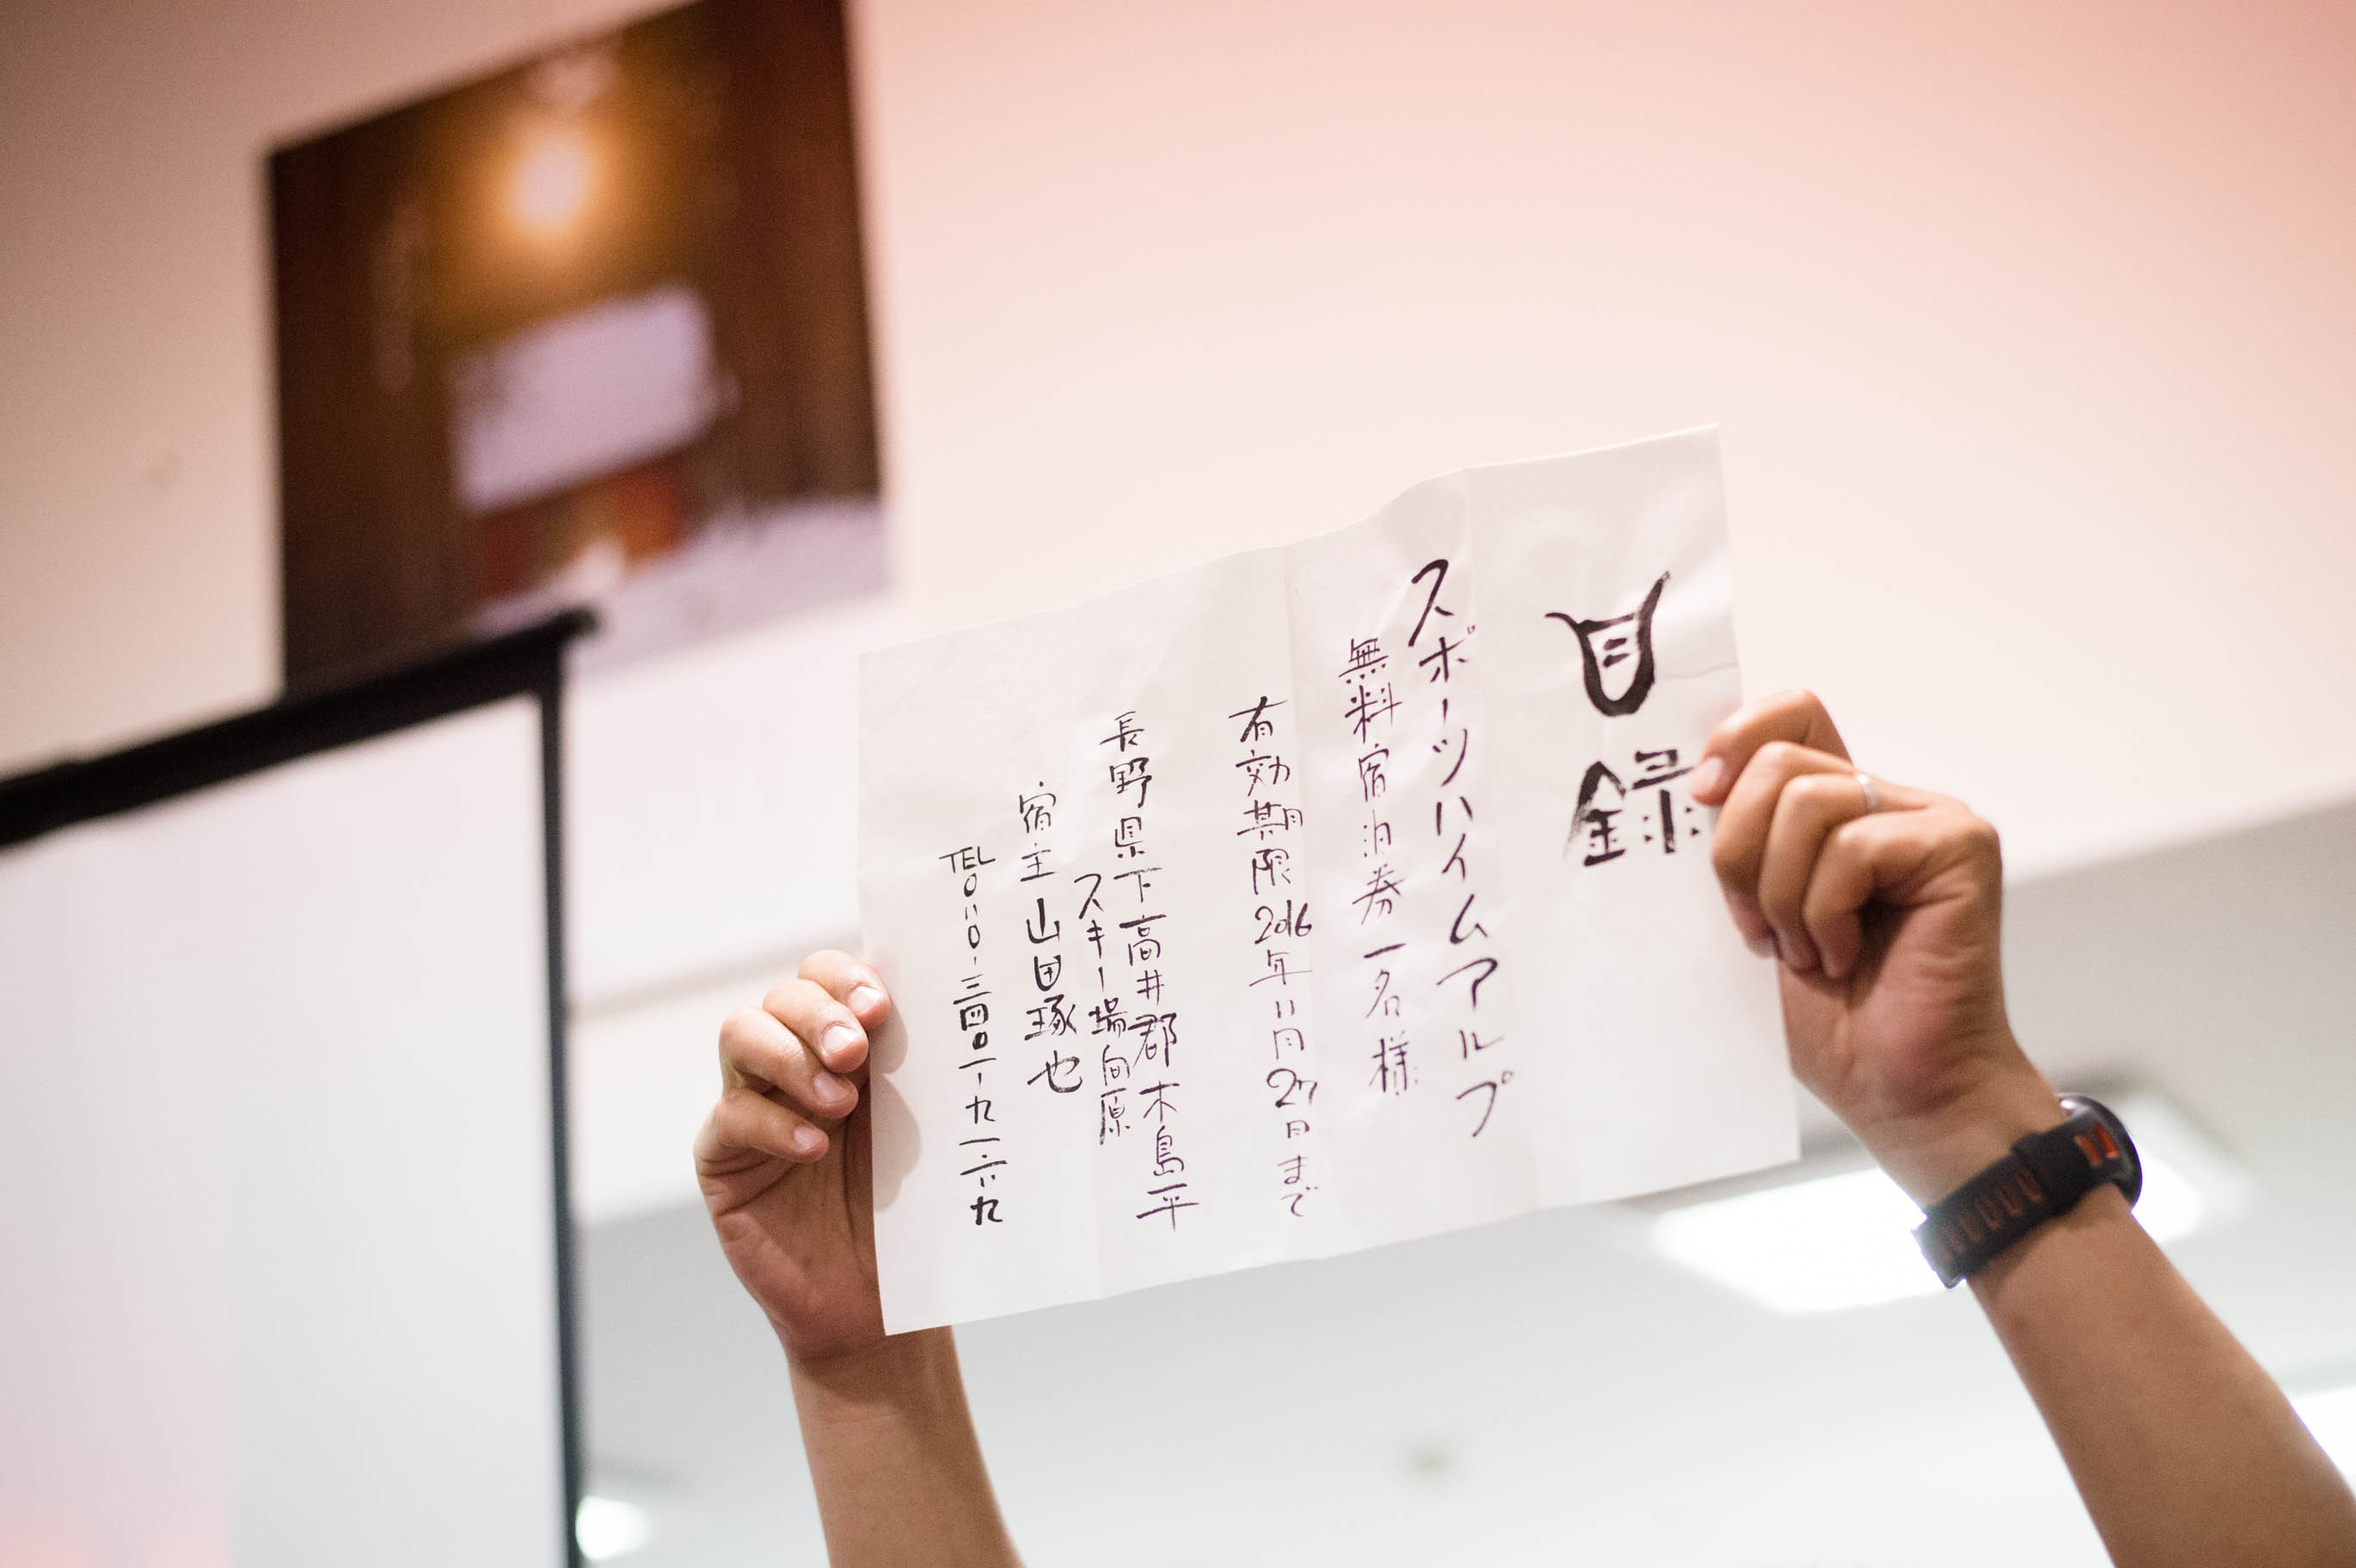 目録
スポーツハイムアルプ
無料宿泊券一名様
有効期限2016年11月27日まで
長野県下高井郡木島平
スキー場向原
宿主 山田琢也
TEL〇八〇-三四〇一-九一六九